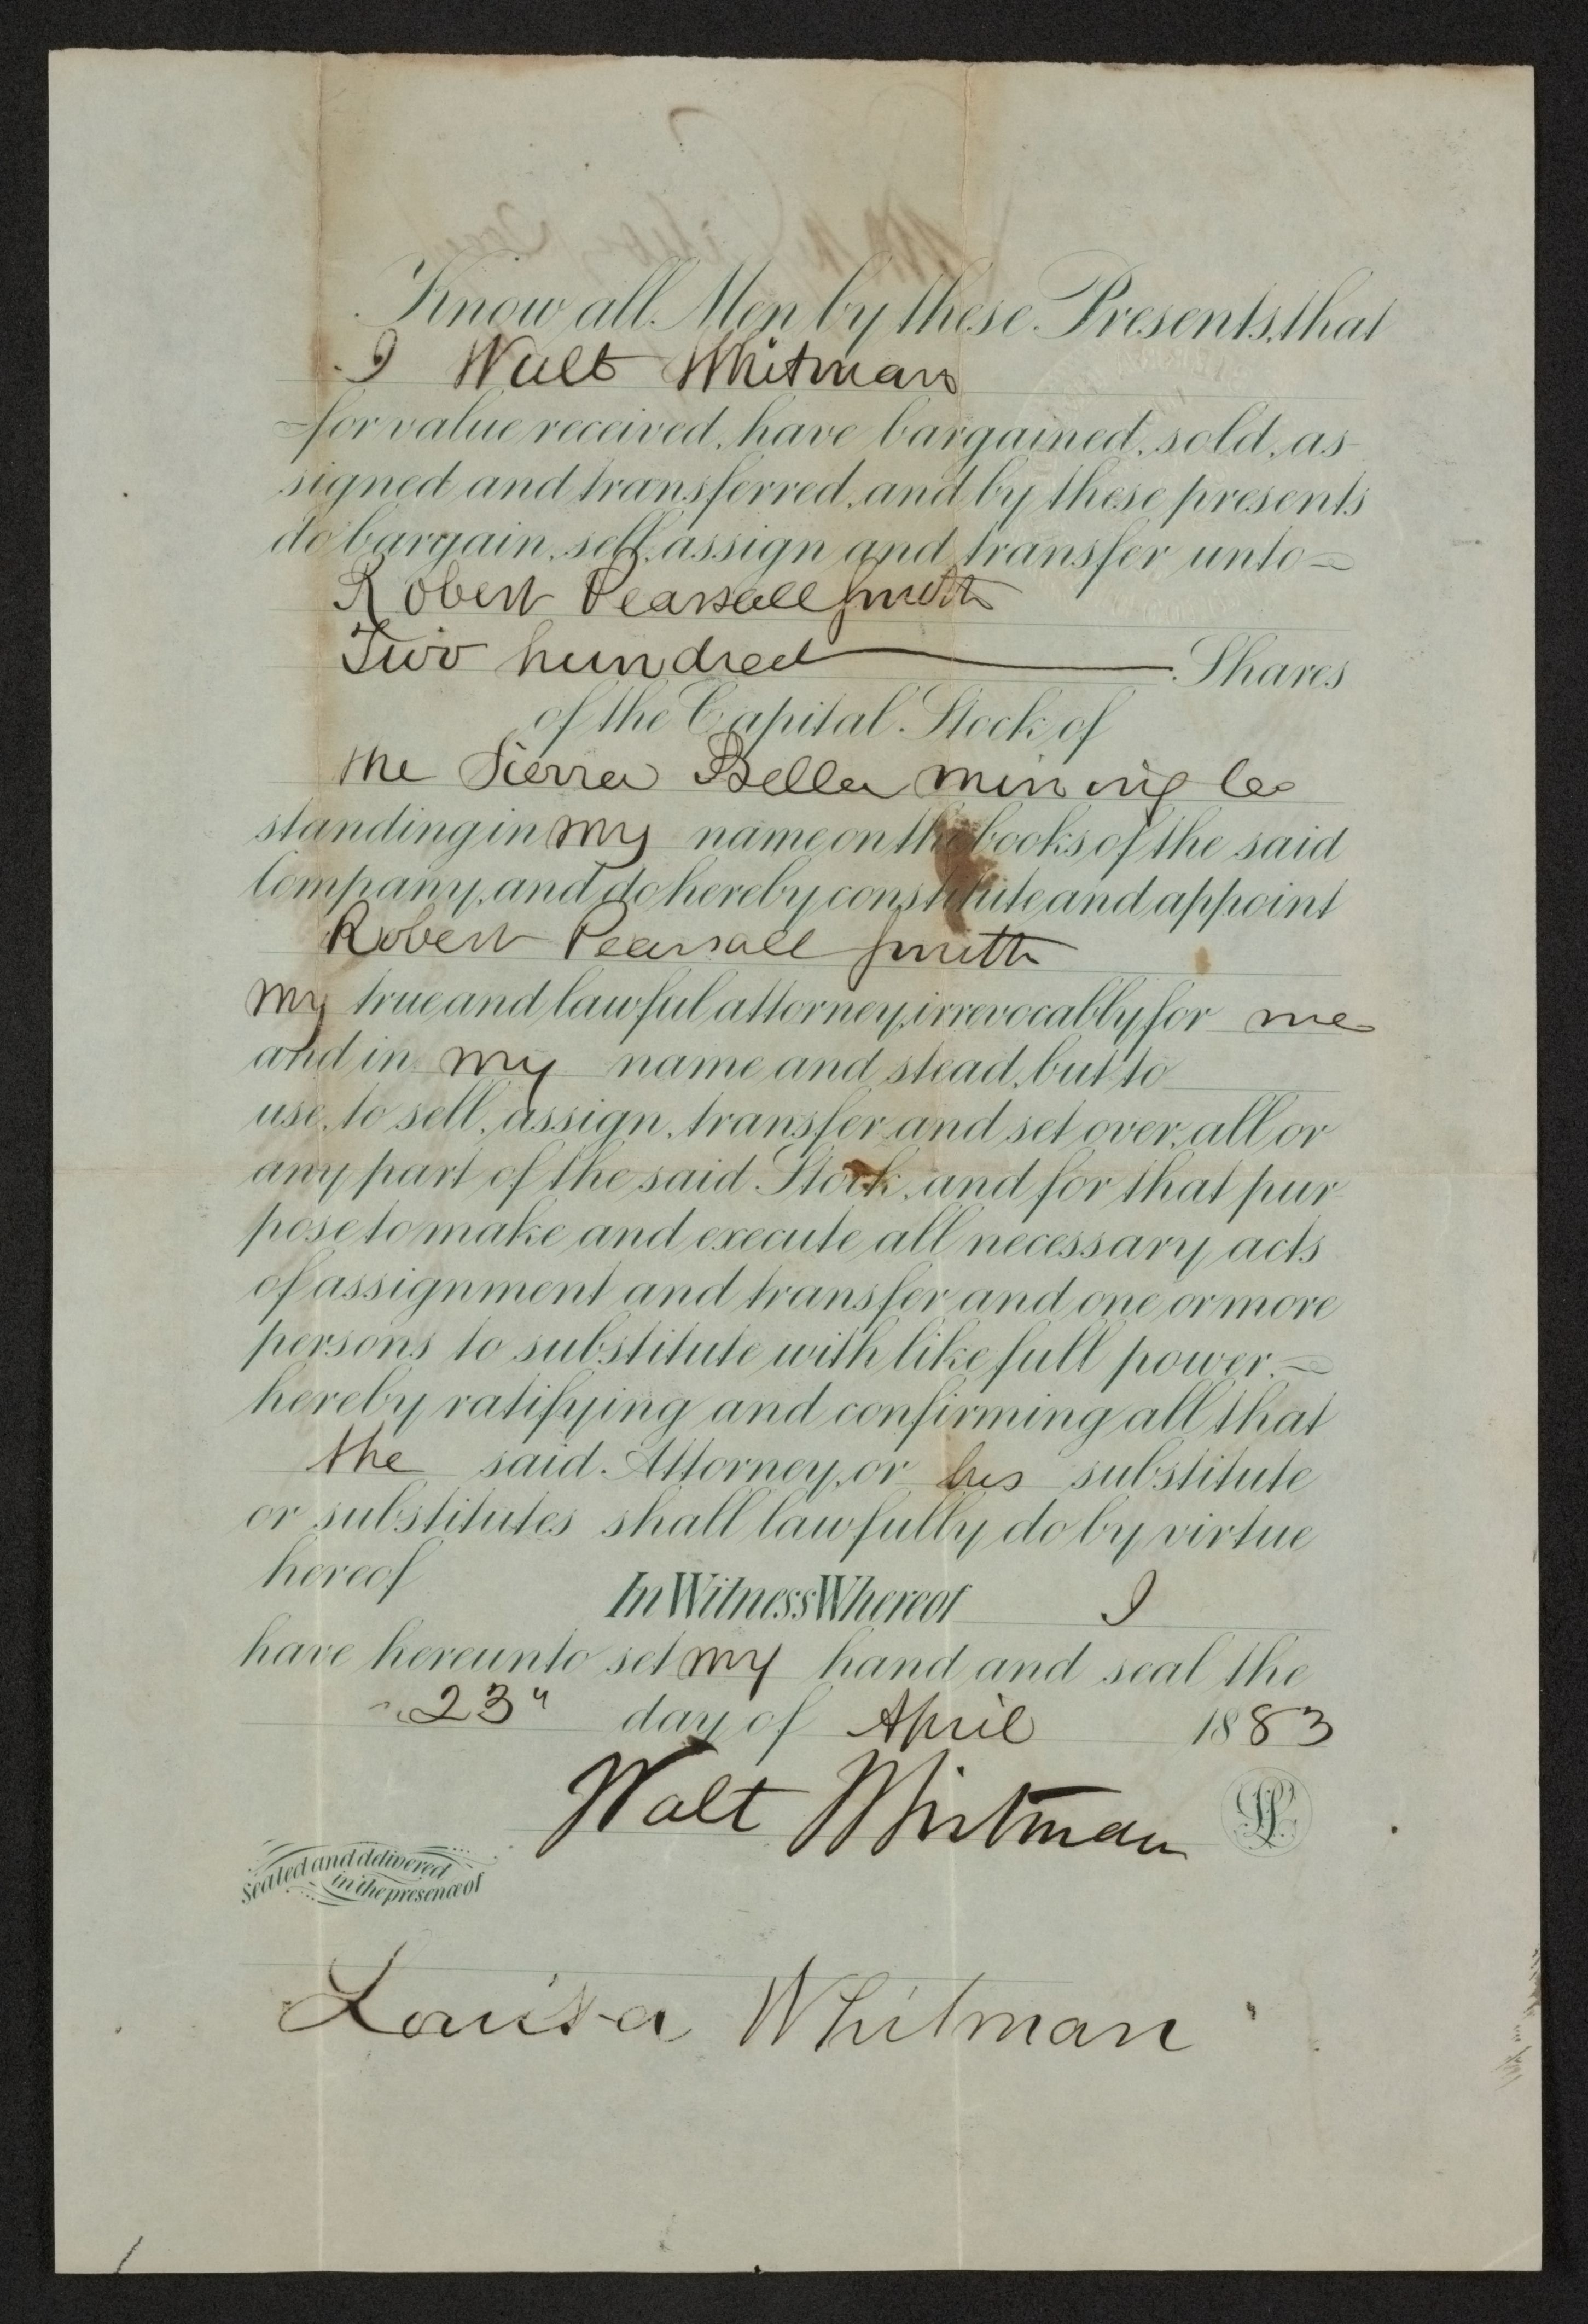 Know all Men by these Presents, that
I Walt Whitman
for value received, have bargained, sold, as-
signed and transferred, and by these presents
do bargain, sell, assign and transfer unto
Robert Pearsall Smith
Two hundred Shares
of the Capital Stock of
the Sierra Bella mining Co
standing in my name on the books of the said
Company, and do hereby constitute and appoint
Robert Pearsall Smith
my true and lawful attorney, irrevocably for me
and in my name and stead, but to
use, to sell, assign, transfer and set over, all or
any part of the said Stock, and for that pur-
pose to make and execute all necessary acts
of assignment and transfer and one or more
persons to substitute with like full power,
hereby ratifying and confirming all that
the said Attorney, or his substitute
or substitutes shall lawfully do by virtue
hereof In Witness Whereof I
have hereunto set my hand and seal the
23" day of April 1883
Walt Whitman LS
Sealed and delivered
in the presence of
Louisa Whitman